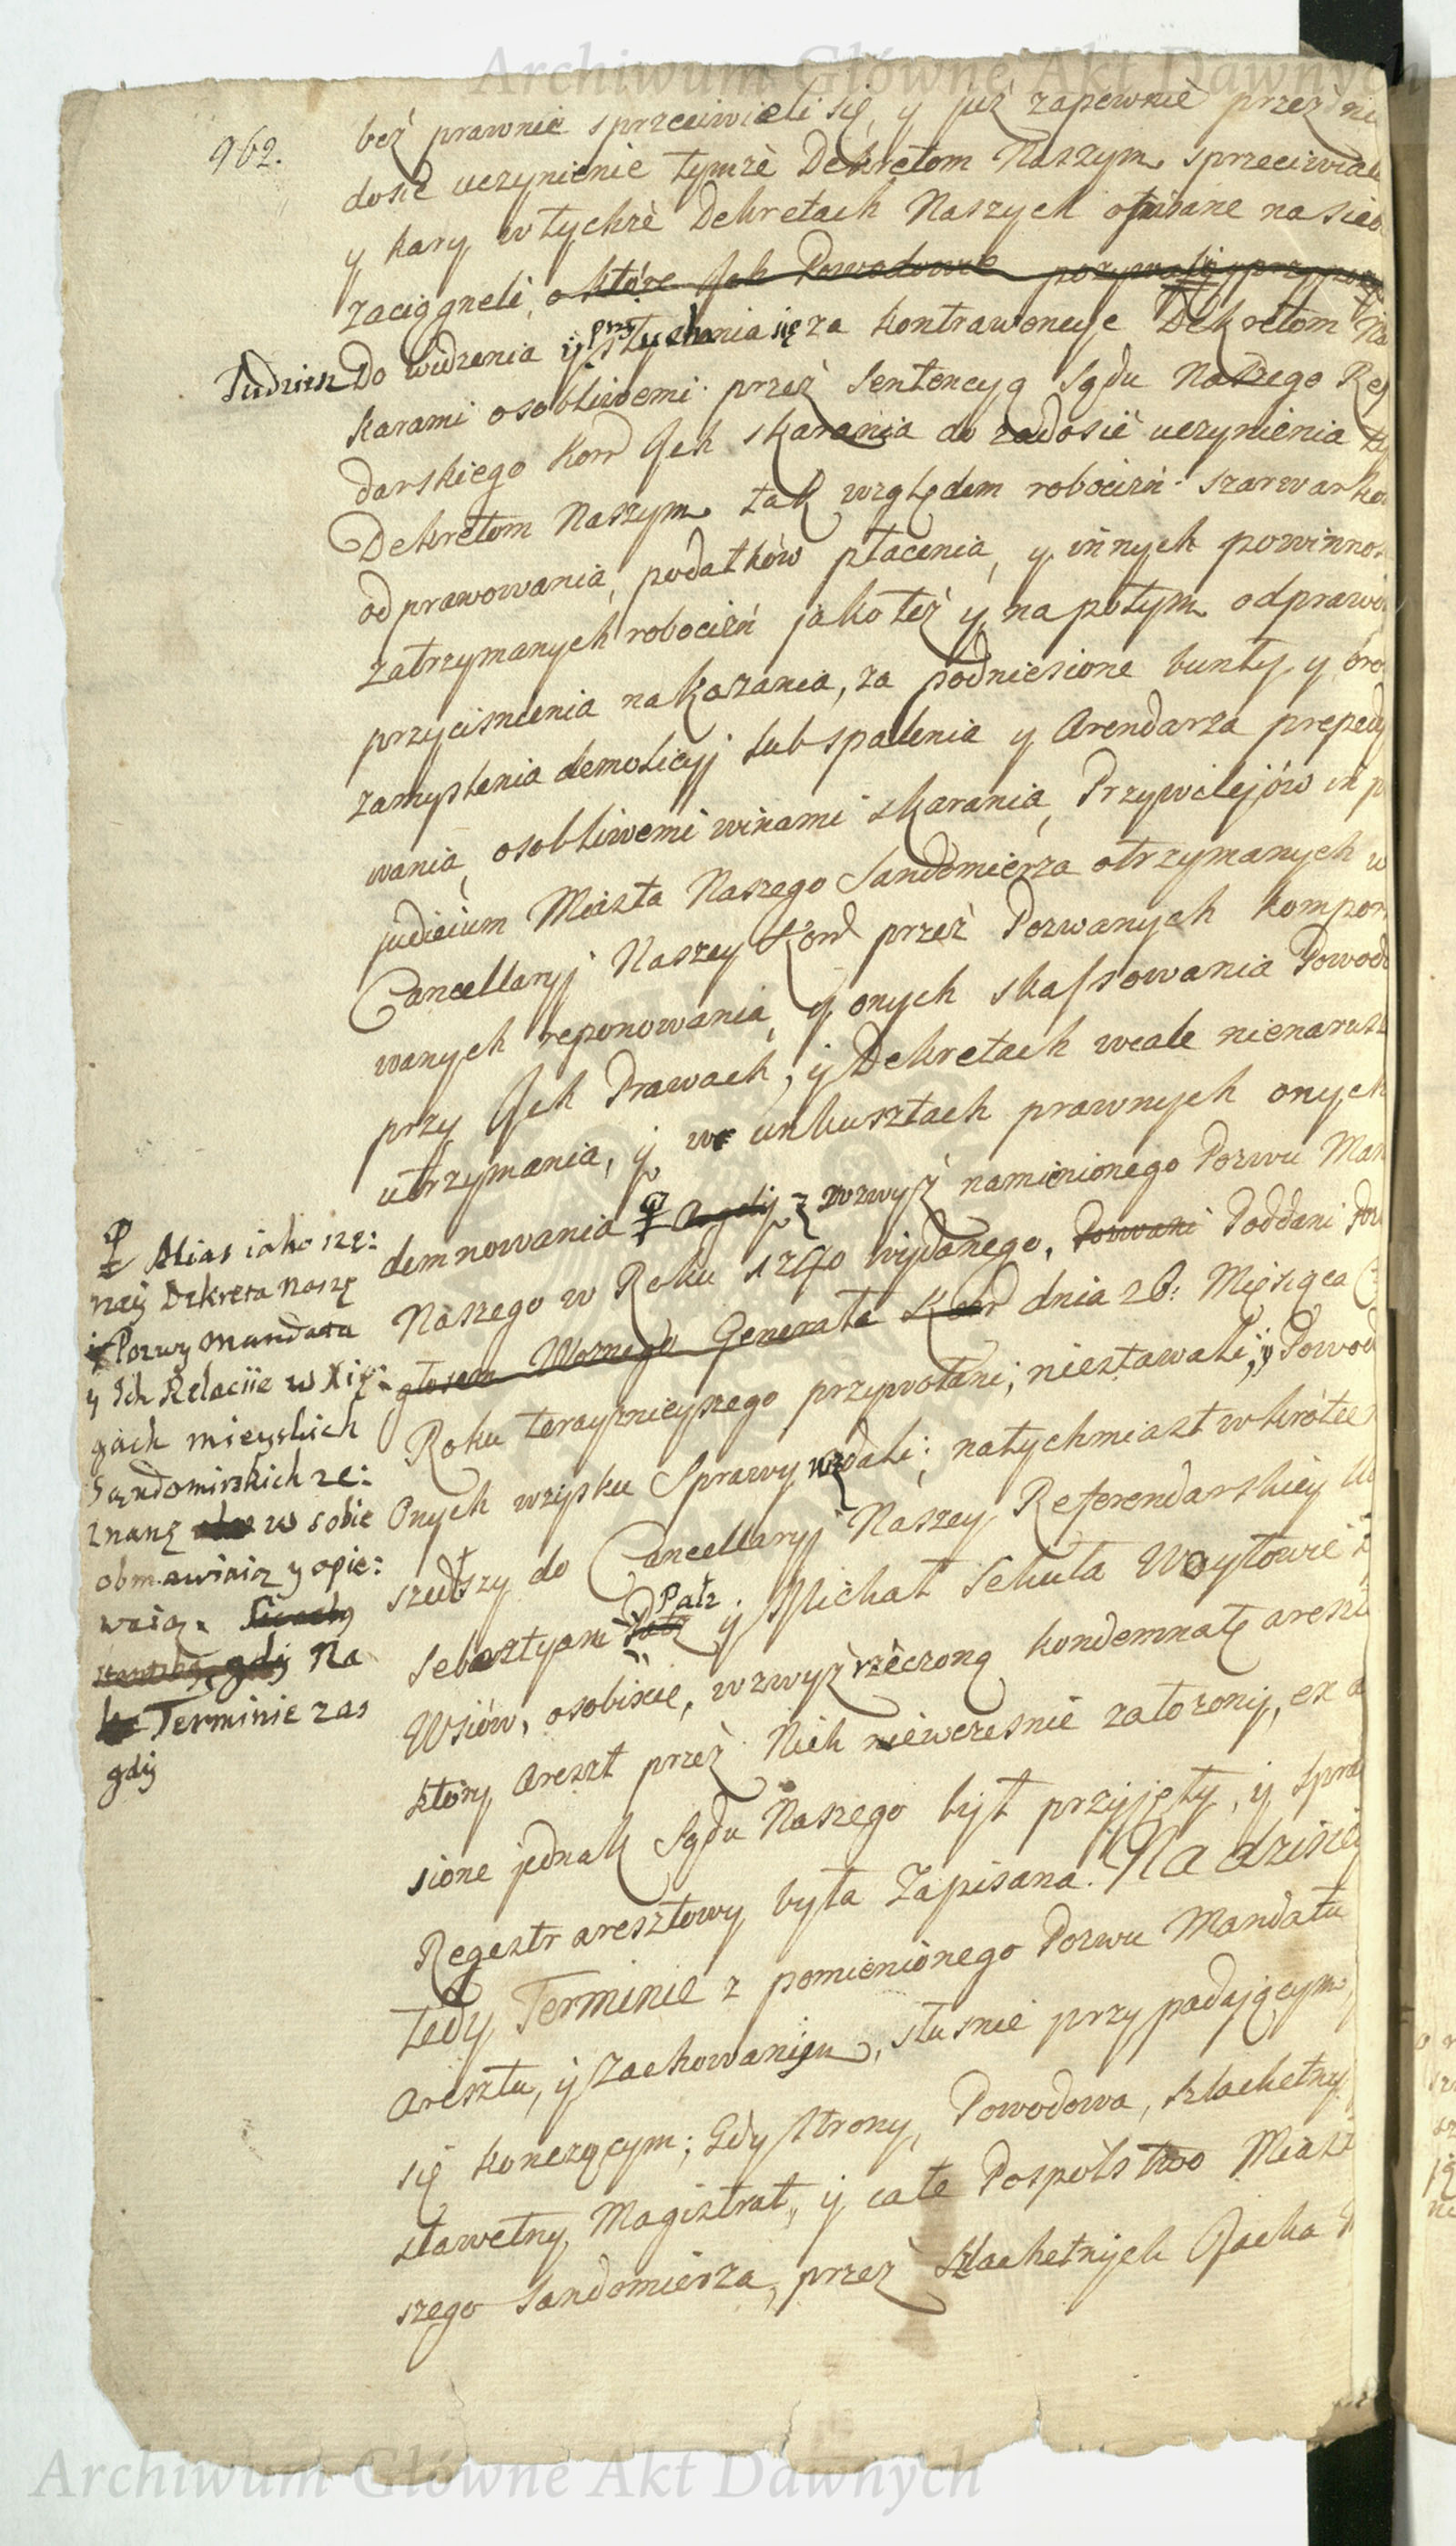 Archiwum Główne Akt Dawnych
962.
beż prawnie sprzeciwieli się, y już zapewnie przeż ni
dosić uczynienie tymże Dekretom Naszym sprzeciwia
y kary w tychże Dekretach Naszych opisane na sie
zaciągneli, o które Jch Powodowie pozywali y przypoz
Tudziesz Do widzenia y przysłuchania się za kontrawencye Dekretom Na
karami osobliwemi przeż Sentencyą Sądu Naszego Re
darskiego Kord Jch skarania do zadosić uczynienia ty
Dekretom Naszym tak względem robocizń szarwarkow
odprawowania, podatków płacenia, y innych powinno
zatrzymanych robocizń jako też y napotym odprawo
przyciśnienia nakazania, za podniesione bunty y
zamyslenia demolicyj lub spalenia y Arendarza preped
wania, osobliwemi winami skarania, Przywilejów in p
judicium Miasta Naszego Sandomierza otrzymanych w
Cancellaryj Naszey Kord przeż Pozwanych kompor
wanych reponowania, y onych skassowania Powod
przy Jch Prawach, y Dekretach wcale nienarusz
utrzymania, y w unkusztach prawnych onych
demnowania z wzwyż namienionego Pozwu Man
Naszego w Roku 1740 wydanego, Pozwani Poddani
głosem Woznego Generała Kord dnia 26: Miesiąca
Roku teraznieyszego przywołani; niestawali, y Powod
Onych wzysku Sprawy zdali; natychmiast wkrótce
szedłszy do Cancellaryj Naszey Referendarskiey
Sebastyan Pałz y Michał Sekuła Woytowie
Wsiów, osobiscie, wzwyż rzeczoną kondemnatę areszt
który Areszt przeż Nich niewczesnie założony, ex
sione jednak Sądu Naszego był przyjęty, y spra
Regestr aresztowy była Zapisana. Na dzisie
tedy Terminie z pomienionego Pozwu Mandatu
Aresztu, y zachowaniem, słusnie przypadającym,
się kończącym; Gdy strony, Powodowa, szlachetny
sławetny Magistrat, y całe Pospólstwo Miast
szego Sandomierza, przez Szlachetnych Jacka
Alias iako szę:
rzéy Dekreta naszę
y Pozwy Mandata
y Ich Relacije w Xię:
gach mieyskich
Sandomirskich ze:
znanę w sobie
obmawiaią y opie:
waią. Na
Terminie zas
gdy
Archiwum Główne Akt Dawnych